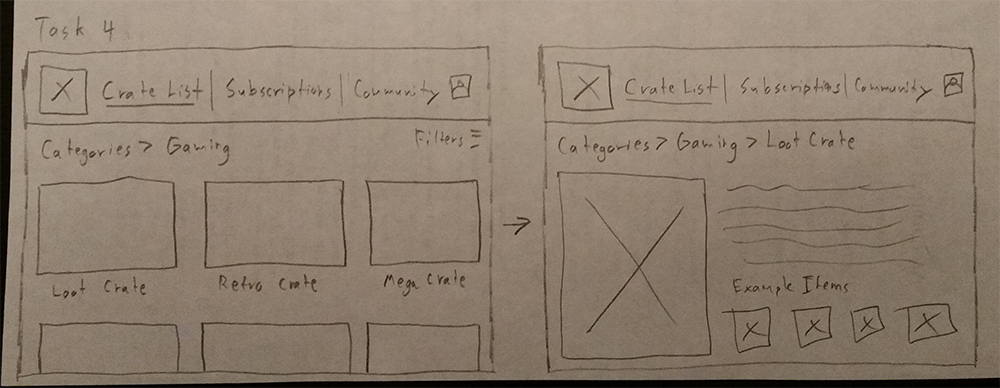 Task 4
Crate List | Subscriptions | Community
Categories > Gaming
Filters
Loot Crate
Retro Crate
Mega Crate
Crate List | Subscriptions | Community
Categories > Gaming > Loot Crate
Example Items